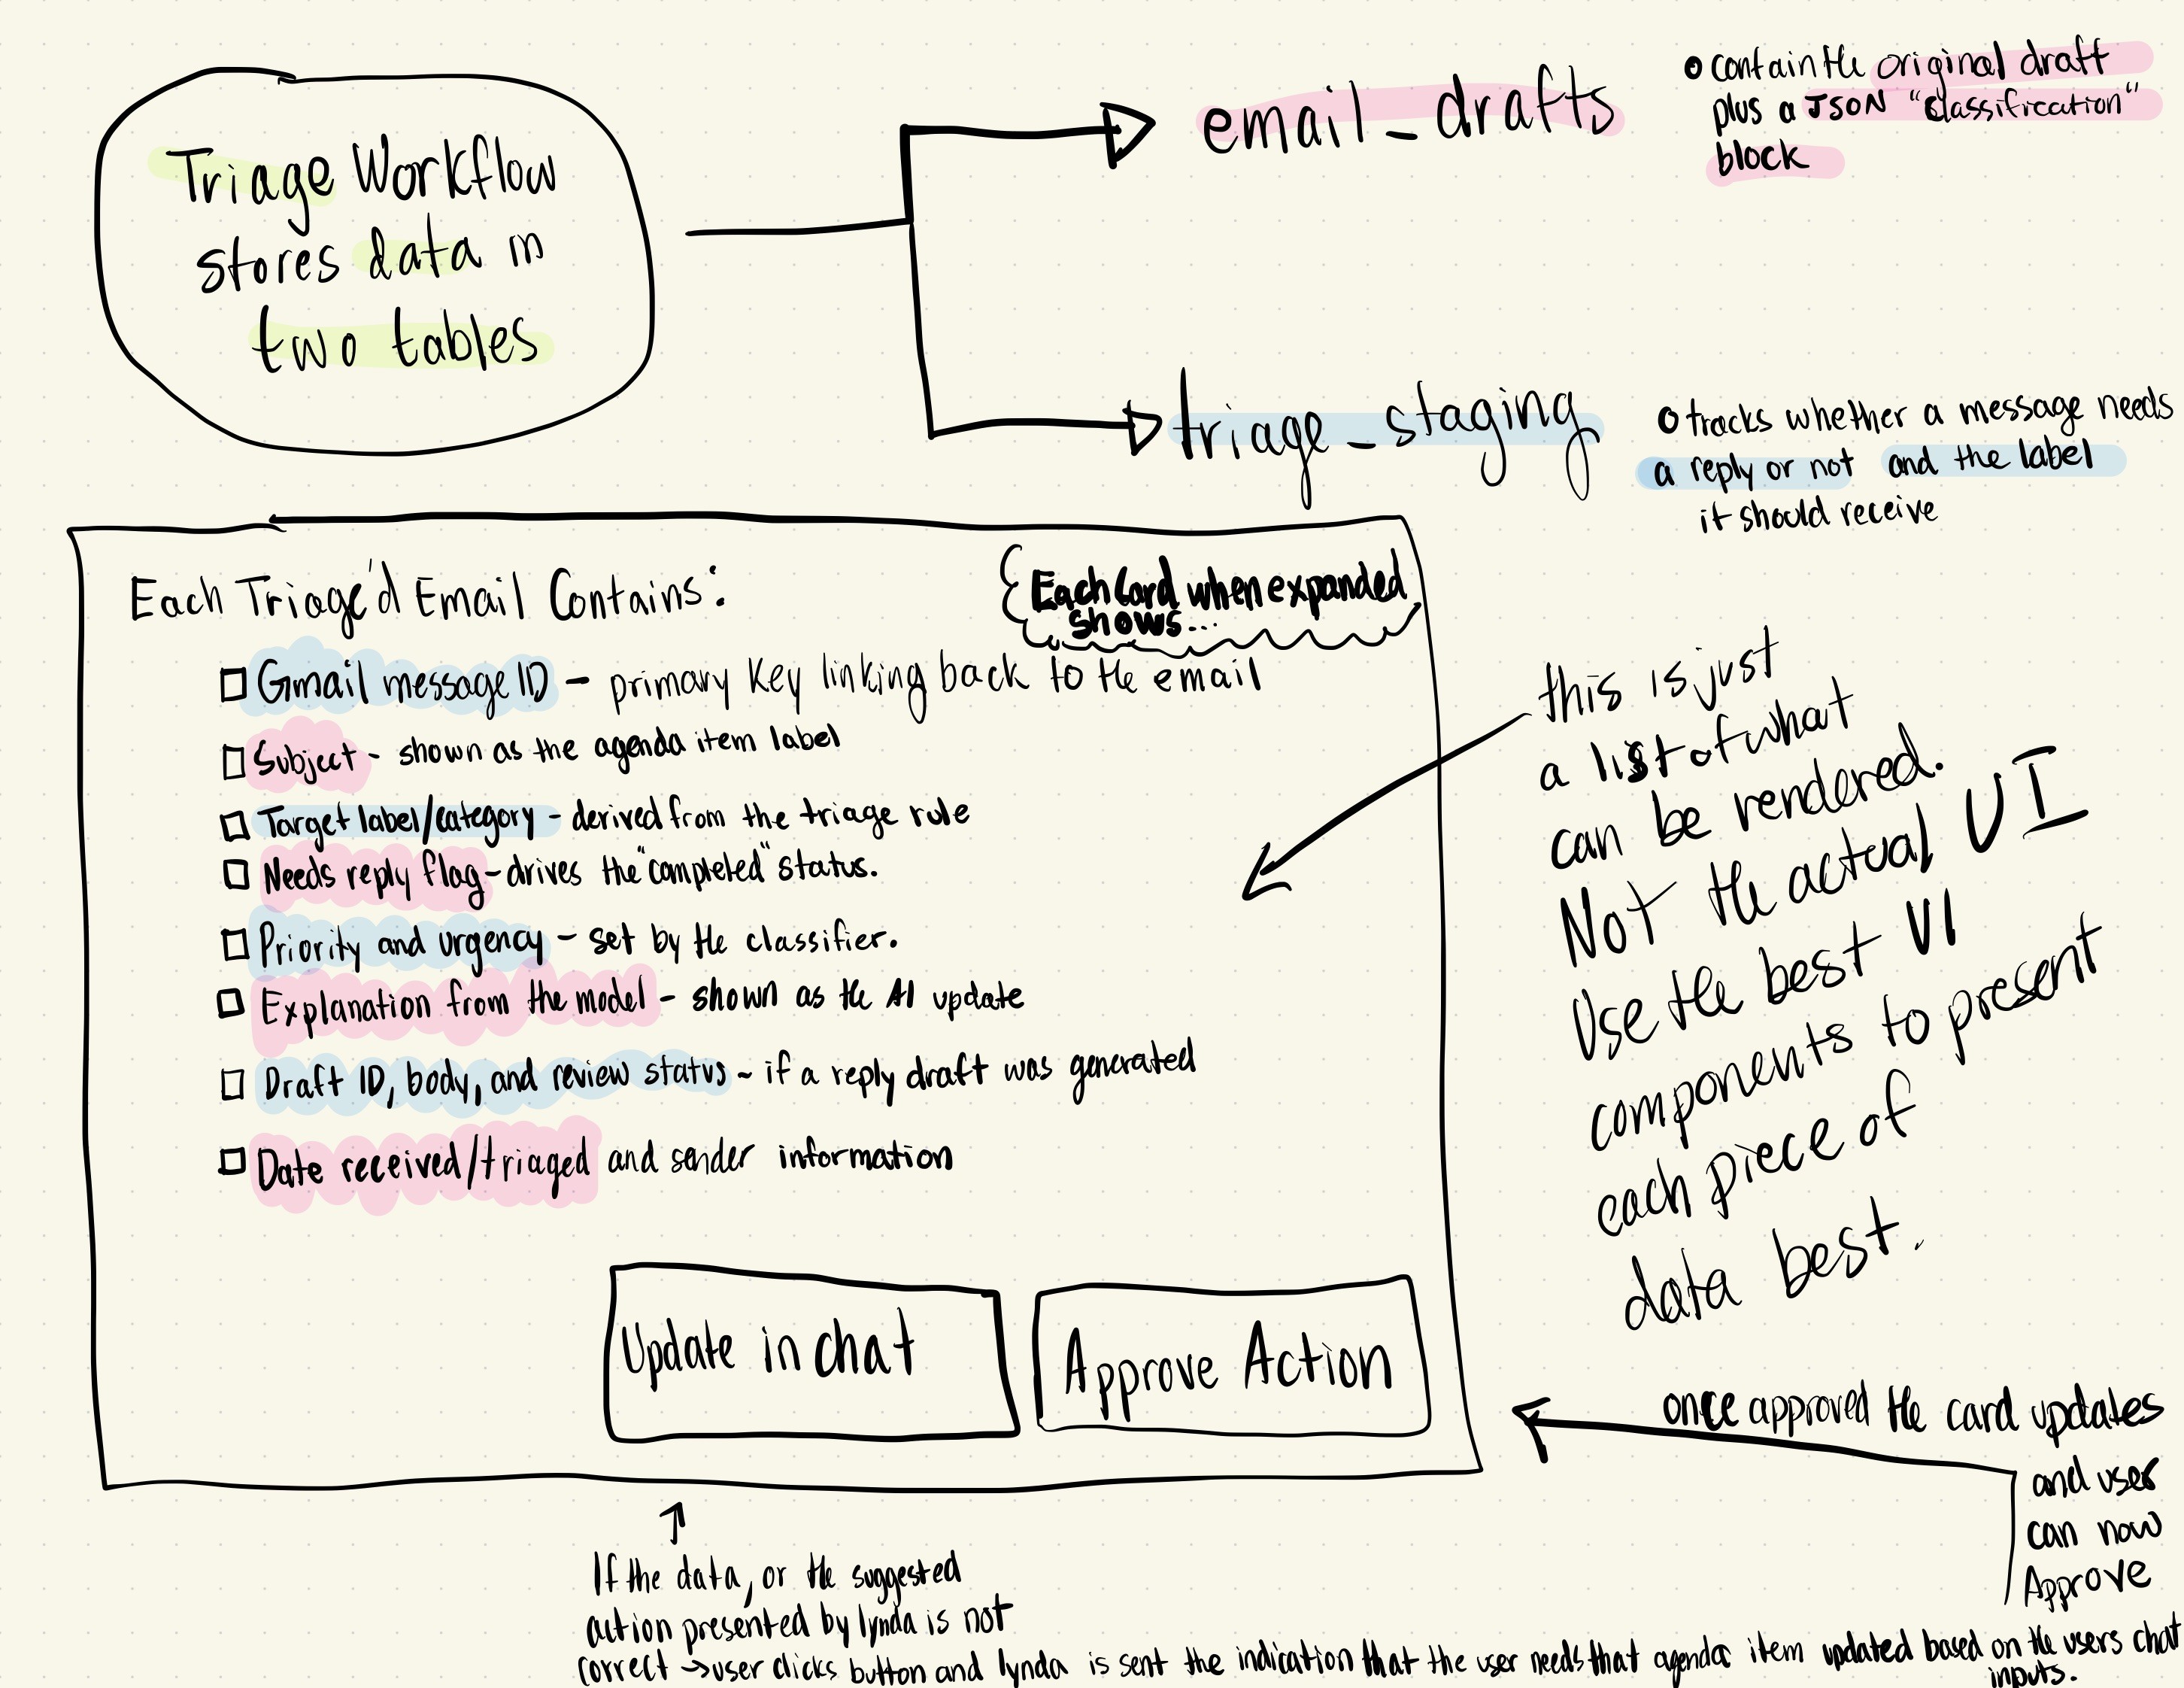 Triage Workflow
stores data in
two tables
email_drafts
contain the original draft
plus a JSON "classification"
block
triage_staging
tracks whether a message needs
a reply or not and the label
it should receive
Each Triage'd Email Contains:
Each Card when expanded
shows...
Gmail message ID - primary key linking back to the email
Subject - shown as the agenda item label
Target label/category - derived from the triage rule
Needs reply flag - drives the "completed" status.
Priority and urgency - set by the classifier.
Explanation from the model - shown as the AI update
Draft ID, body, and review status - if a reply draft was generated
Date received/triaged and sender information
this is just
a list of what
can be rendered.
Not the actual UI
Use the best UI
components to present
each piece of
data best.
Update in chat
Approve Action
once approved the card updates
and user
can now
Approve
If the data, or the suggested
action presented by lynda is not
correct → user clicks button and lynda is sent the indication that the user needs that agenda item updated based on the users chat
inputs.